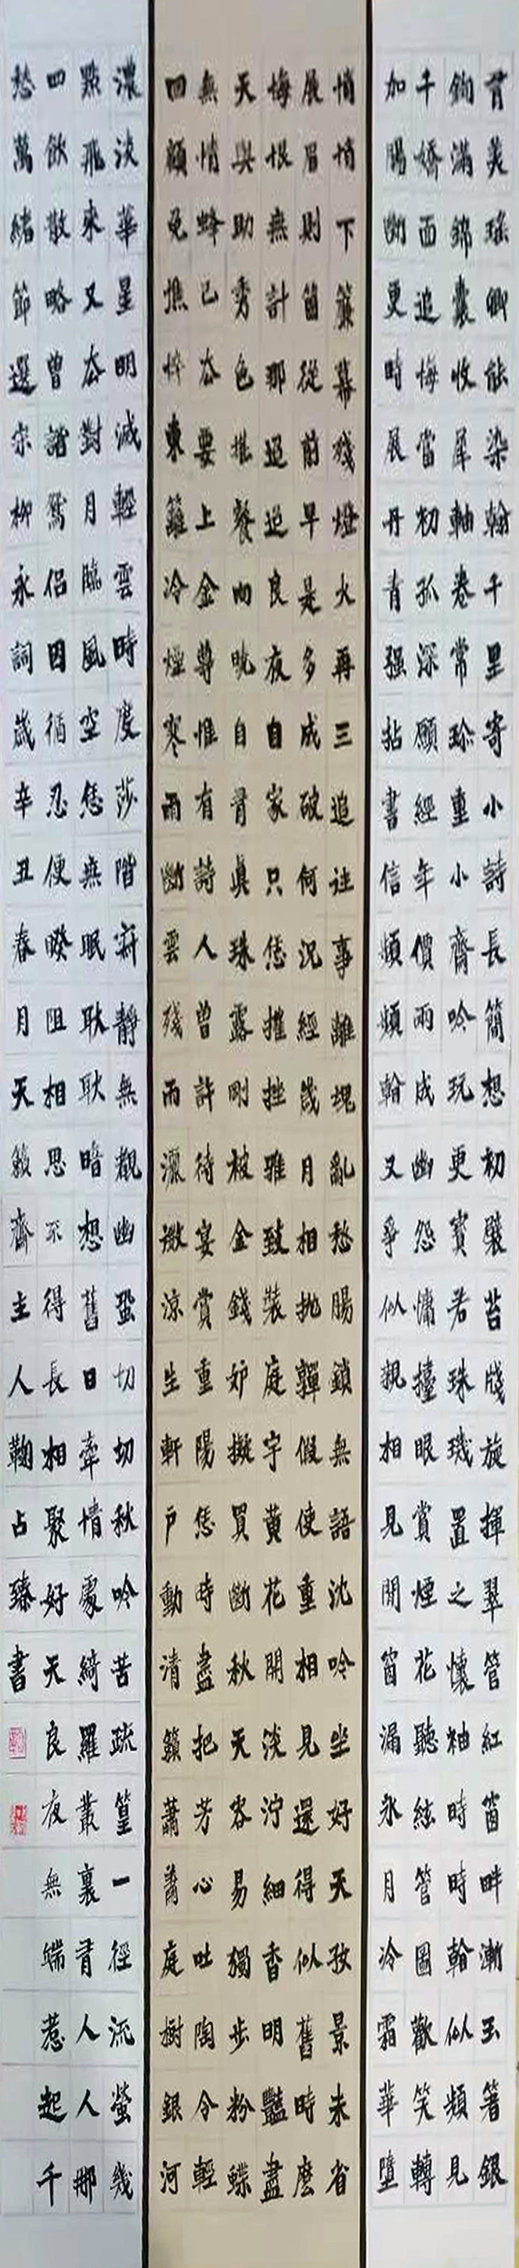 有美瑤卿能染翰千里寄小詩長簡想初襞苔牋旋揮翠管紅窗畔漸玉箸銀
鉤滿錦囊收犀軸卷常珍重小齋吟玩更寶若珠璣置之懷袖時時看似頻見
千嬌面追悔當初孤深願經年價兩成幽怨慵擡眼賞煙花聽絃管圖歡笑轉
加腸斷更時展丹青强拈書信頻頻看又爭似親相見閒窗漏永月冷霜華墮
悄悄下簾幕殘燈火再三追往事離魂亂愁腸鎖無語沈吟坐好天好景未省
展眉則箇從前早是多成破何況經歲月相抛嚲假使重相見還得似舊時麽
悔恨無計那迢迢良夜自家只恁摧挫雅致裝庭宇黃花開淡泞細香明豔盡
天與助秀色堪餐向曉自有真珠露剛被金錢妒擬買斷秋天容易獨步粉蝶
無情蜂已去要上金尊惟有詩人曾許待宴賞重陽恁時盡把芳心吐陶令輕
回顧免憔悴東籬冷煙寒雨斷雲殘雨灑微涼生軒戶動清籟蕭蕭庭樹銀河
濃淡華星明滅輕雲時度莎階寂靜無覩幽蛩切切秋吟苦疏篁一徑流螢幾
點飛來又去對月臨風空恁無眠耿耿暗想舊日牽情處綺羅叢裏有人人那
回飲散略曾諧鴛侶因循忍便睽阻相思不得長相聚好天良夜無端惹起千
愁萬緒節選宋柳永詞歲辛丑春月天毅齋主人鞠占臻書